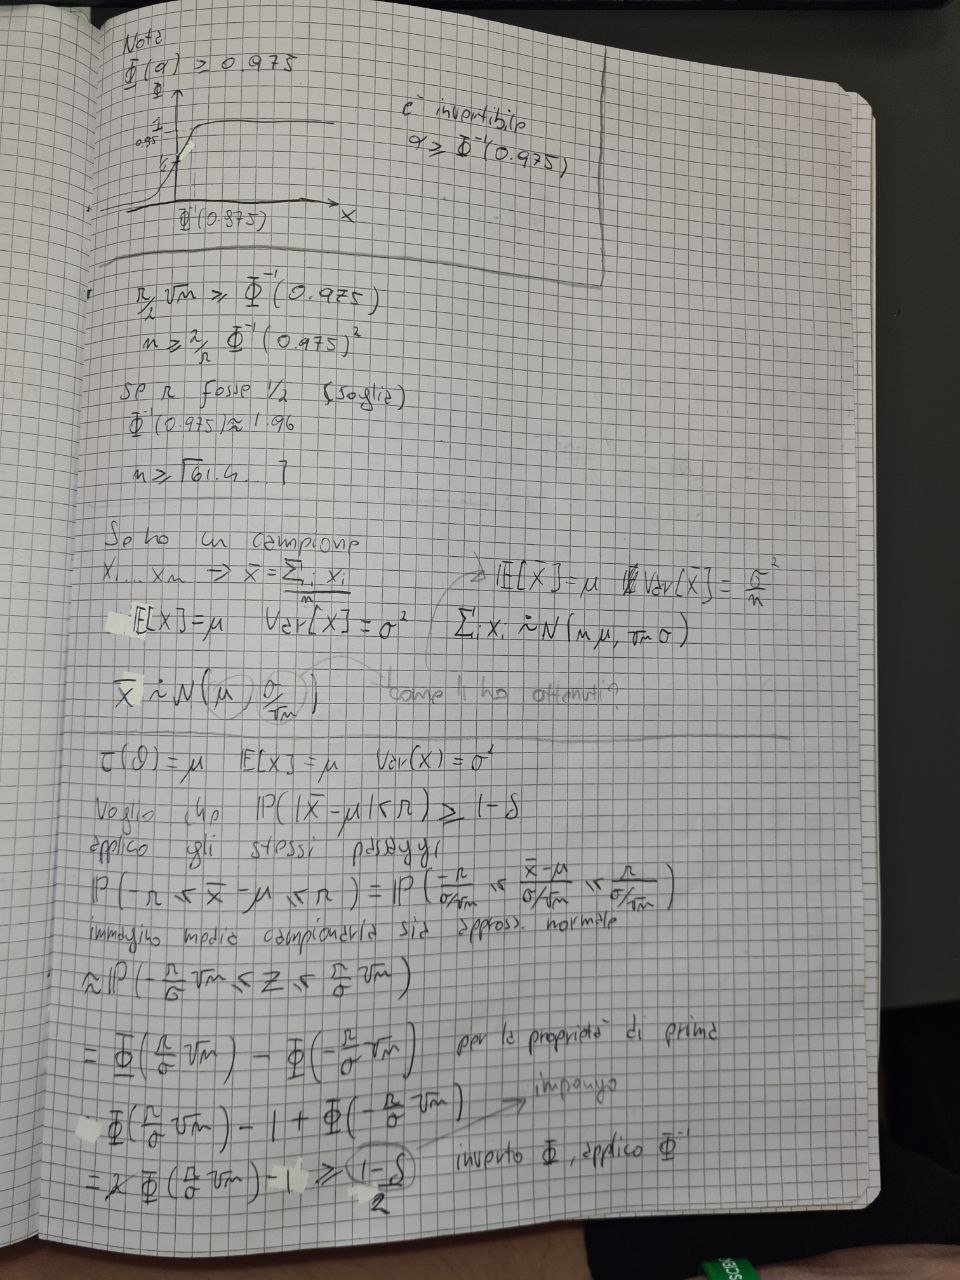 Nota
Φ(a) ≥ 0.975
Φ
1
0.95
1/2
Φ⁻¹(0.975)
x
è invertibile
a ≥ Φ⁻¹(0.975)
r/2 √n ≥ Φ⁻¹(0.975)
n ≥ 2/r Φ⁻¹(0.975)²
Se r fosse 1/2 (soglia)
Φ⁻¹(0.975) ≈ 1.96
n ≥ ⌈61.4...⌉
Se ho un campione
X₁...Xₙ ⇒ X̄ = Σᵢ Xᵢ / n
E[X̄] = μ Var[X̄] = σ²/n
E[X] = μ Var[X] = σ² Σᵢ Xᵢ ∼̇ N(nμ, √n σ)
X̄ ∼̇ N(μ, σ/√n) come li ho ottenuti?
τ(θ) = μ E[X] = μ Var(X) = σ²
Voglio che P(|X̄-μ| ≤ r) ≥ 1-δ
applico gli stessi passaggi
P(-r ≤ X̄-μ ≤ r) = P(-r/(σ/√n) ≤ (X̄-μ)/(σ/√n) ≤ r/(σ/√n))
immagino media campionaria sia appross. normale
≈ P(-r/σ √n ≤ Z ≤ r/σ √n)
= Φ(r/σ √n) - Φ(-r/σ √n) per la proprietà di prima
Φ(r/σ √n) - 1 + Φ(-r/σ √n) impongo
= 2Φ(r/σ √n) - 1 ≥ 1-δ/2 inverto Φ, applico Φ⁻¹